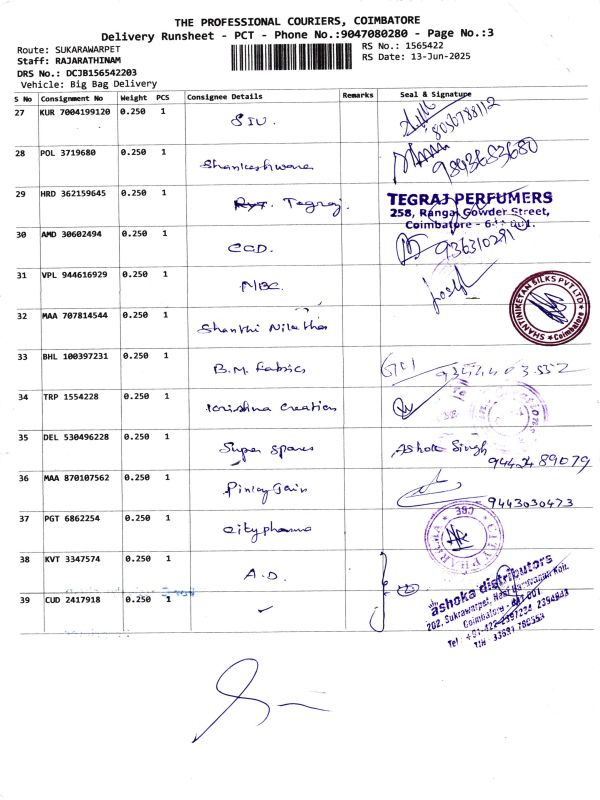 THE PROFESSIONAL COURIERS, COIMBATORE
Delivery Runsheet - PCT - Phone No.:9047080280 - Page No.:3
Route: SUKARAWARPET
RS No.: 1565422
Staff: RAJARATHINAM
RS Date: 13-Jun-2025
DRS No.: DCJB156542203
Vehicle: Big Bag Delivery
S No Consignment No Weight PCS Consignee Details Remarks Seal & Signature
27 KUR 7004199120 0.250 1 SIU. 8056788112
28 POL 3719680 0.250 1 Shankeshwara 9843653680
29 HRD 362159645 0.250 1 Tegraj.
TEGRAJ PERFUMERS
258, Rangai Gowder Street,
Coimbatore - 641 001.
30 AMD 30602494 0.250 1 CCD.
31 VPL 944616929 0.250 1 NBC. Josef
SHANTINIKETAN SILKS PVT LTD
Coimbatore
32 MAA 707814544 0.250 1 Shanthi Nilathas
33 BHL 100397231 0.250 1 B.M. Fabrics
34 TRP 1554228 0.250 1 Krishna Creations
35 DEL 530496228 0.250 1 Super Spares Ashok Singh
9442489079
36 MAA 870107562 0.250 1 Pinky Gain
9443030473
37 PGT 6862254 0.250 1 City pharma
CITY PHARMA
CBE
38 KVT 3347574 0.250 1 A.D.
39 CUD 2417918 0.250 1
ashoka distributors
202, Sukrawarpet,
Coimbatore - 641 001
Tel : +91-422-2397234 2394843